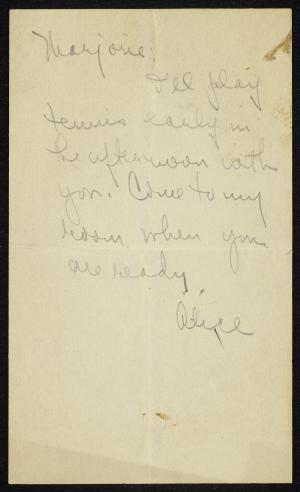 Marjorie:
I'll play
tennis early in
the afternoon with
you. Come to my
room when you
are ready.
Alice